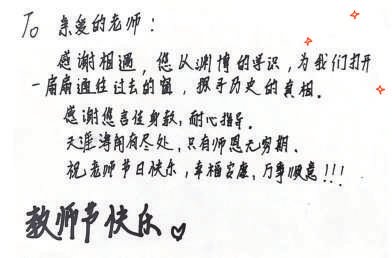 To 亲爱的老师：
感谢相遇，您以渊博的学识，为我们打开
一扇扇通往过去的窗，探寻历史的真相。
感谢您言传身教，耐心指导。
天涯海角有尽处，只有师恩无穷期。
祝老师节日快乐，幸福安康，万事顺意！！！
教师节快乐